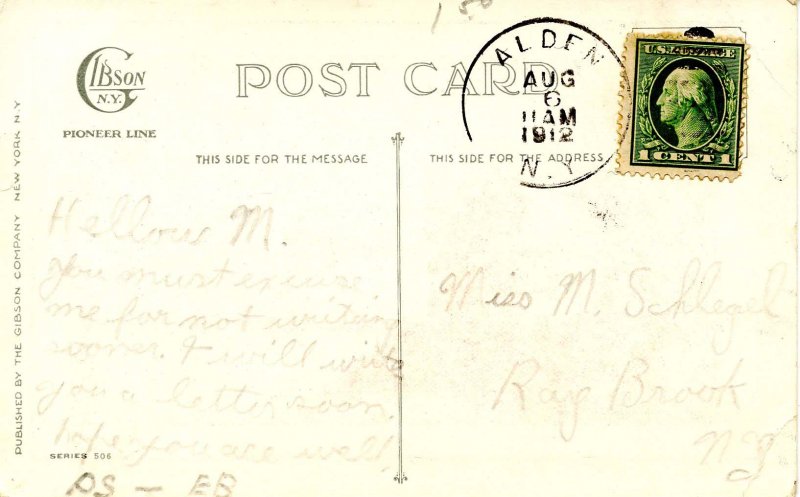 1 50
GIBSON
N.Y.
PIONEER LINE
POST CARD
ALDEN
AUG
6
11AM
1912
N.Y.
U.S. POSTAGE
1 CENT 1
THIS SIDE FOR THE MESSAGE
THIS SIDE FOR THE ADDRESS
PUBLISHED BY THE GIBSON COMPANY NEW YORK N.Y
Hellow M.
You must excuse
me for not writing
sooner. I will write
you a letter soon.
hope you are well
Miss M. Schlegel
Ray Brook
N.Y
SERIES 506
PS - EB